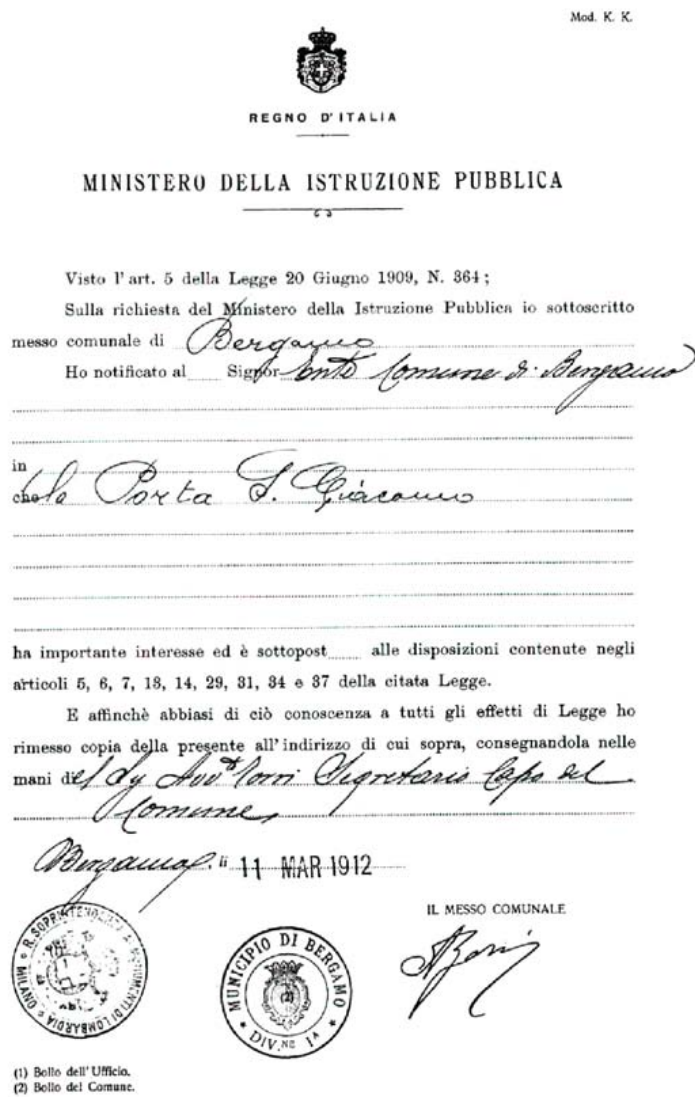 Mod. K. K.
REGNO D'ITALIA
MINISTERO DELLA ISTRUZIONE PUBBLICA
Visto l'art. 5 della Legge 20 Giugno 1909, N. 364;
Sulla richiesta del Ministero della Istruzione Pubblica io sottoscritto
messo comunale di Bergamo
Ho notificato al Signor Ente Comune di Bergamo
in
che la Porta S. Giacomo
ha importante interesse ed è sottopost alle disposizioni contenute negli
articoli 5, 6, 7, 13, 14, 29, 31, 34 e 37 della citata Legge.
E affinchè abbiasi di ciò conoscenza a tutti gli effetti di Legge ho
rimesso copia della presente all'indirizzo di cui sopra, consegnandola nelle
mani del Segretario Capo del
Comune
Bergamo, li 11 MAR 1912
IL MESSO COMUNALE
R. SOPRINTENDENZA MONUMENTI DI LOMBARDIA
MILANO
MUNICIPIO DI BERGAMO
(2)
DIV.NE 1ª
(1) Bollo dell'Ufficio.
(2) Bollo del Comune.